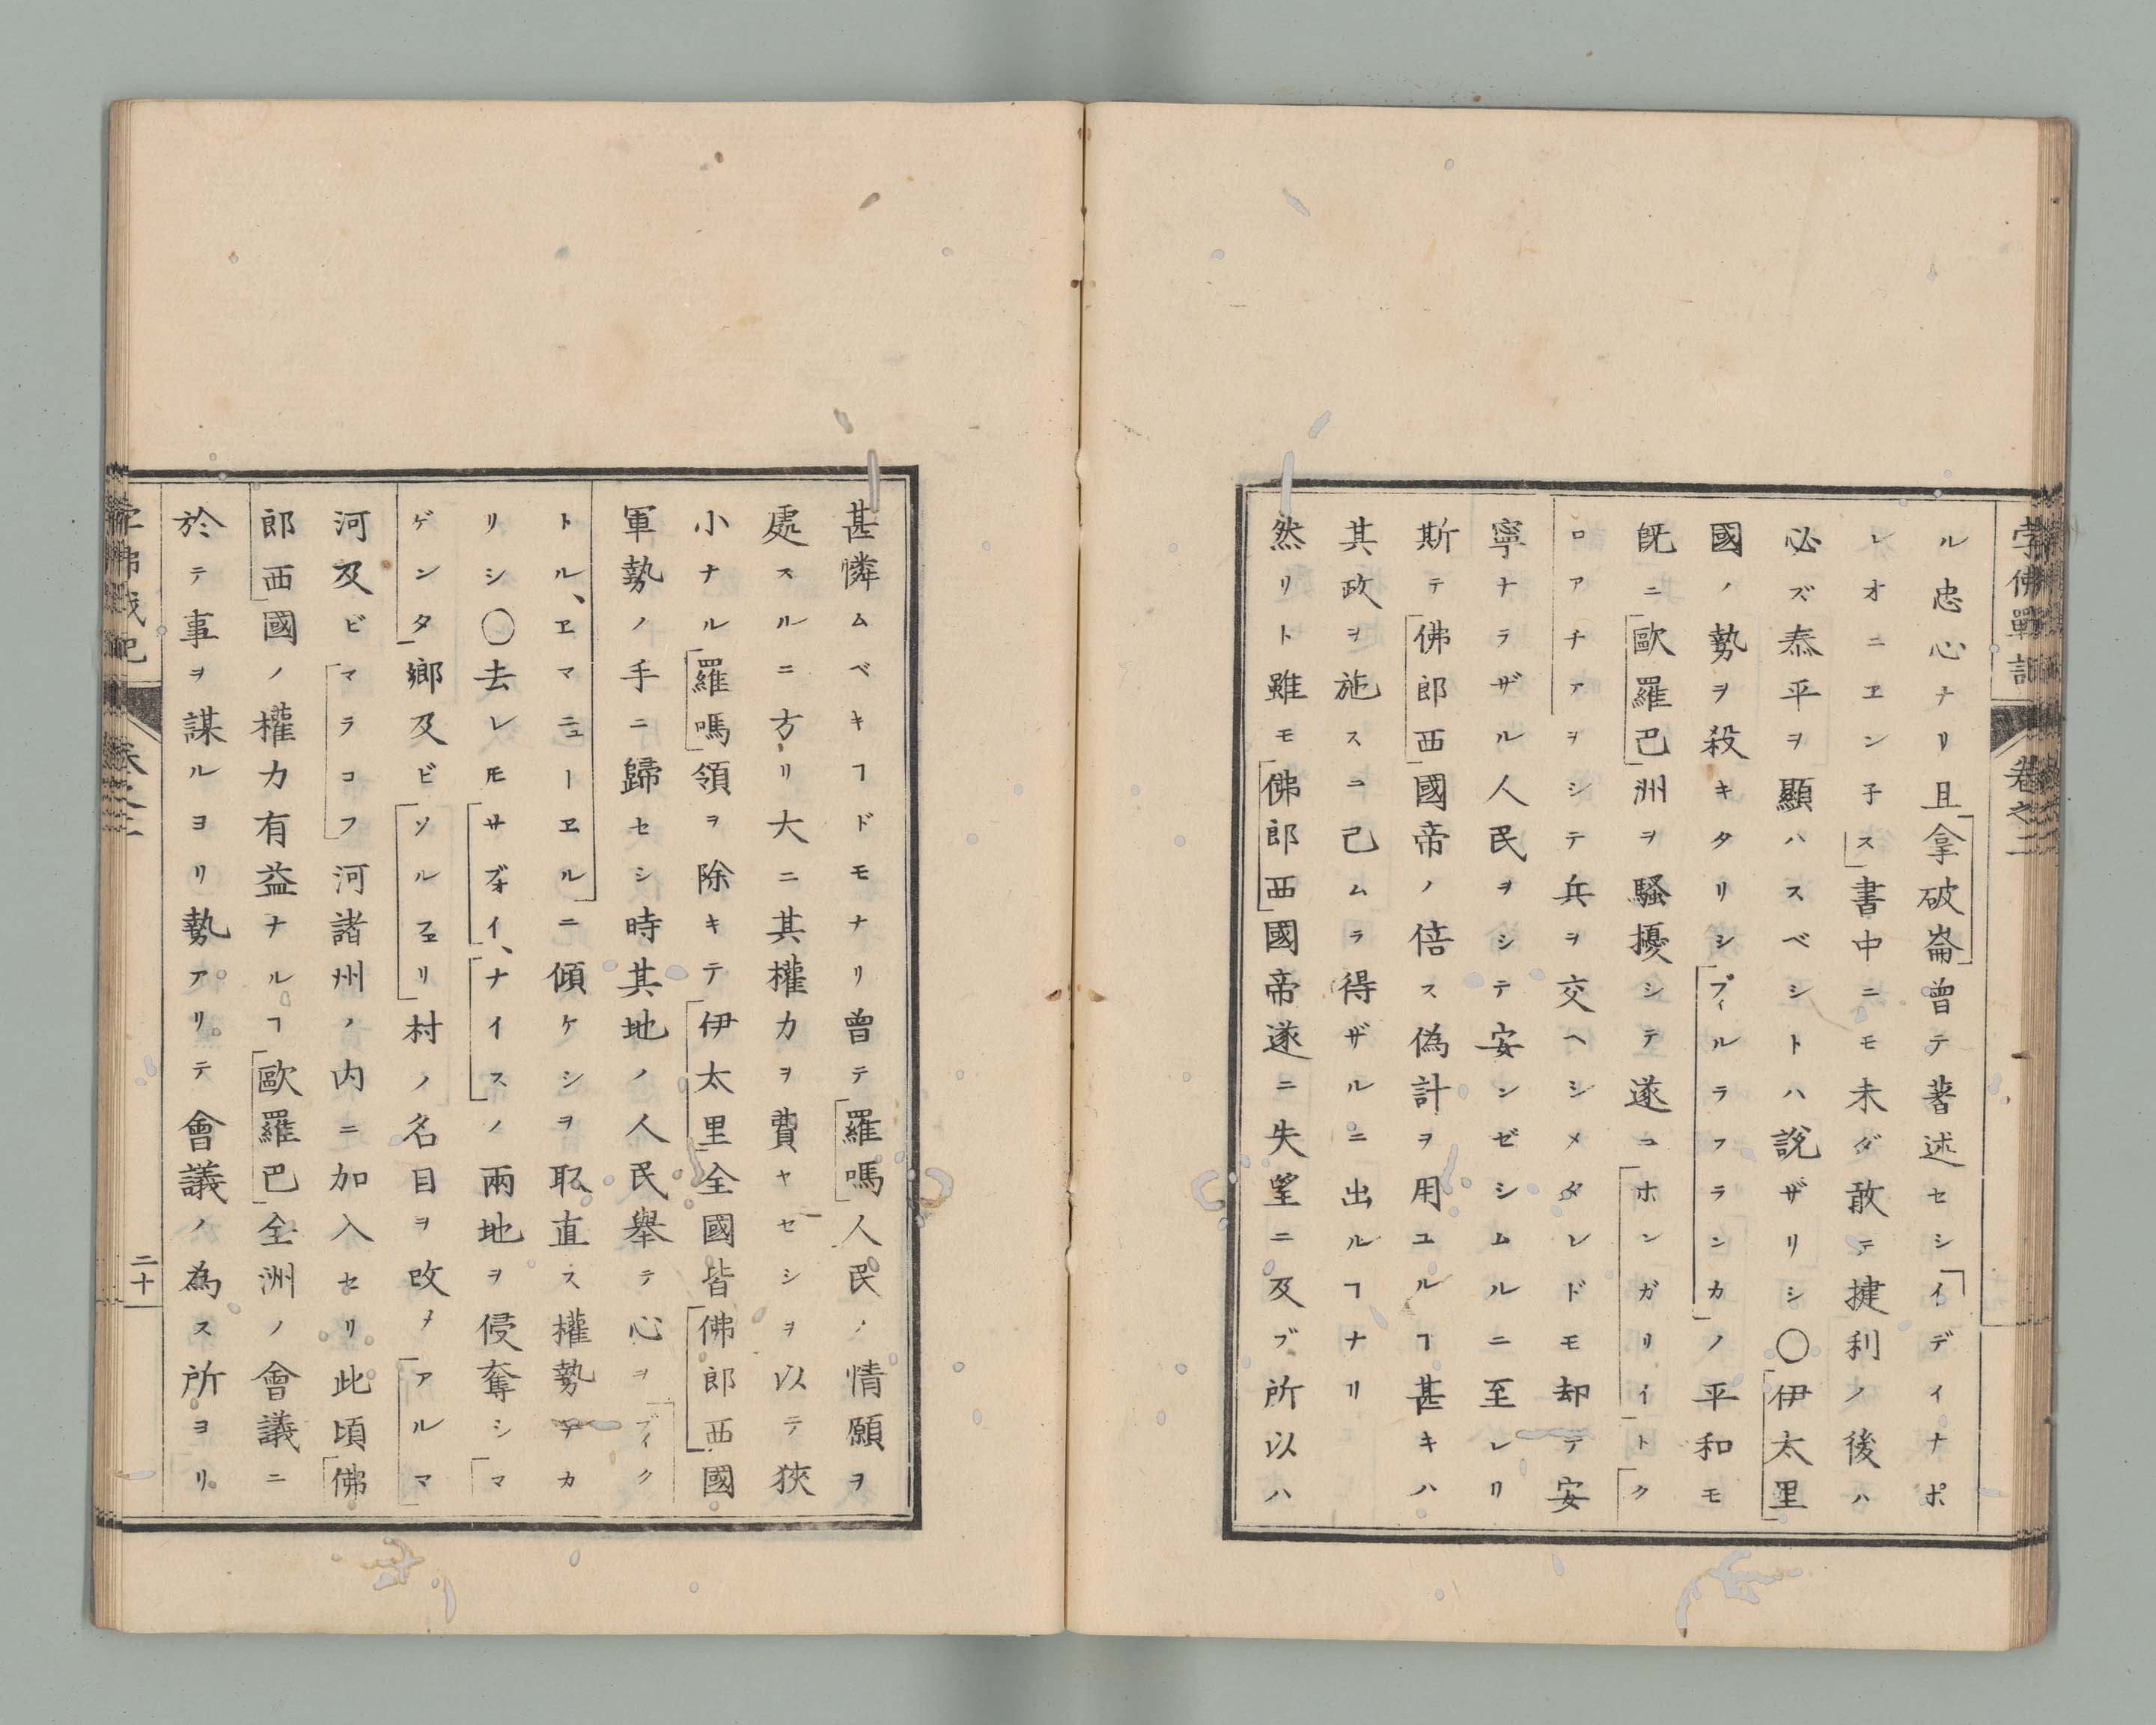 孛佛戰記 卷之二
ル忠心ナリ且「拿破崙」曾テ著述セシ「イデイナポ
レオニヱン子ス」書中ニモ未ダ敢テ捷利ノ後ハ
必ズ泰平ヲ顯ハスベシトハ說ザリシ〇「伊太里」
國ノ勢ヲ殺キタリシ「ブィルラフランカ」ノ平和モ
旣ニ「歐羅巴」洲ヲ騷擾シテ遂ニ「ホンガリイ」ト「ク
ロアチア」ヲシテ兵ヲ交ヘシメタレドモ却テ安
寧ナラザル人民ヲシテ安ンゼシムルニ至レリ
斯テ「佛郎西」國帝ノ倍ス偽計ヲ用ユルヿ甚キハ
其政ヲ施スニ己ムヲ得ザルニ出ルヿナリ
然リト雖モ「佛郎西」國帝遂ニ失望ニ及ブ所以ハ
甚憐ムベキヿドモナリ曾テ「羅嗎」人民ノ情願ヲ
處スルニ方リ大ニ其權力ヲ費ヤセシヲ以テ狹
小ナル「羅嗎」領ヲ除キテ「伊太里」全國皆「佛郎西」國
軍勢ノ手ニ歸セシ時其地ノ人民擧テ心ヲ「ブィク
トル、ヱマニューヱル」ニ傾ケシヲ取直ス權勢ヂカ
リシ〇去レ𪜈「サヴォイ」、「ナイス」ノ兩地ヲ侵奪シ「マ
ゲンタ」鄕及ビ「ソルフヱリ」村ノ名目ヲ改メ「アルマ」
河及ビ「マラコフ」河諸州ノ內ニ加入セリ此頃「佛
郎西」國ノ權力有益ナルヿ「歐羅巴」全洲ノ會議ニ
於テ事ヲ謀ルヨリ勢アリテ會議ノ為ス所ヨリ
孛佛戰記 卷之二 二十